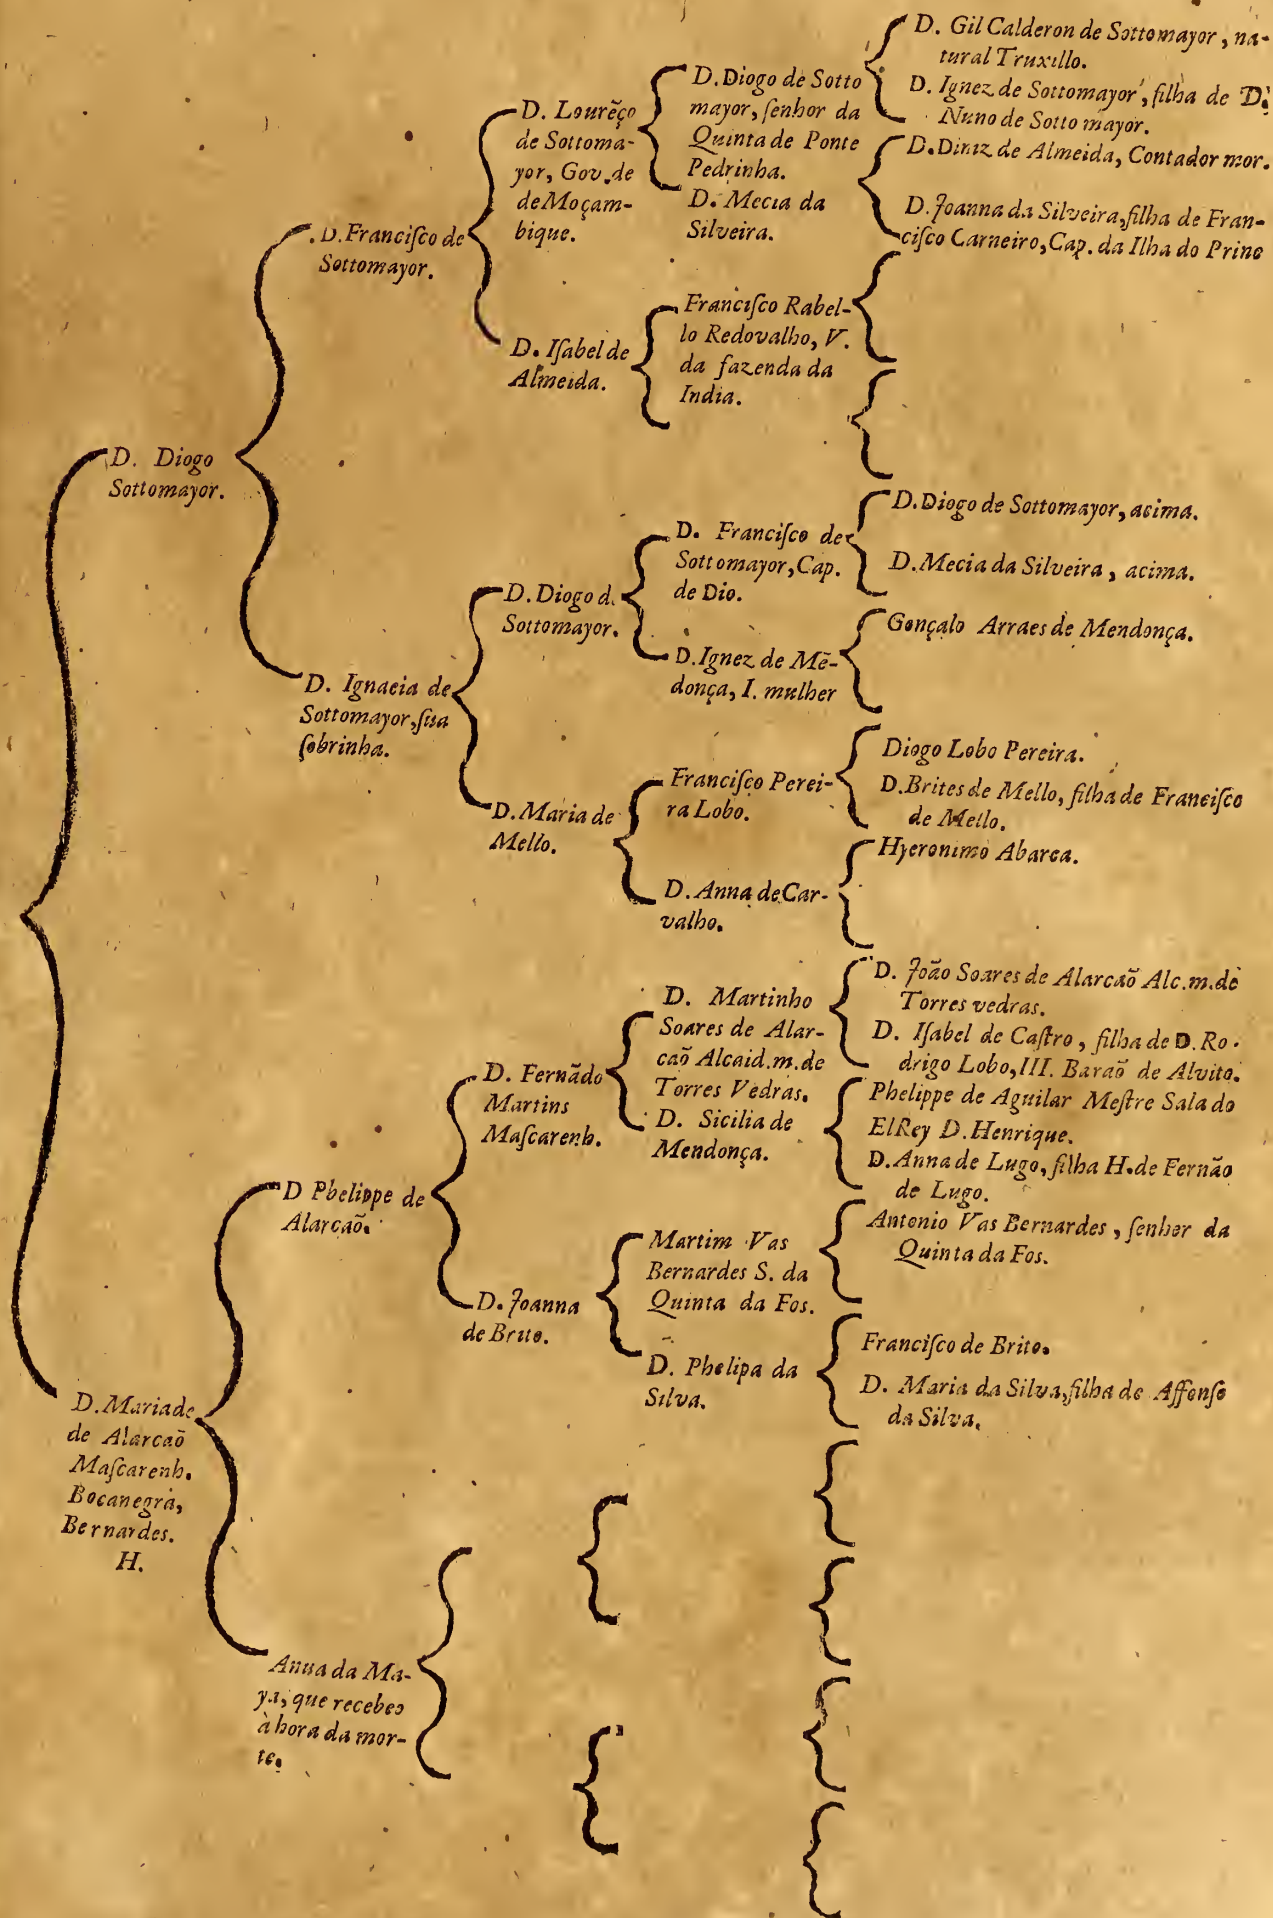 D. Diogo
Sottomayor.
D. Mariade
de Alarcaõ
Maſcarenh.
Bocanegra,
Bernardes.
H.
D. Franciſco de
Sottomayor.
D. Ignacia de
Sottomayor, ſua
ſobrinha.
D Phelippe de
Alarcaõ.
Anna da Ma-
ya, que recebeo
à hora da mor-
te.
D. Lourẽço
de Sottoma-
yor, Gov. de
de Moçam-
bique.
D. Iſabel de
Almeida.
D. Diogo d.
Sottomayor.
D. Maria de
Mello.
D. Fernãdo
Martins
Maſcarenh.
D. Joanna
de Brito.
D. Diogo de Sotto
mayor, ſenhor da
Quinta de Ponte
Pedrinha.
D. Mecia da
Silveira.
Franciſco Rabel-
lo Redovalho, V.
da fazenda da
India.
D. Franciſco de
Sottomayor, Cap.
de Dio.
D. Ignez de Mẽ-
donça, I. mulher
Franciſco Perei-
ra Lobo.
D. Anna de Car-
valho.
D. Martinho
Soares de Alar-
caõ Alcaid. m. de
Torres Vedras.
D. Sicilia de
Mendonça.
Martim Vas
Bernardes S. da
Quinta da Fos.
D. Phelipa da
Silva.
D. Gil Calderon de Sottomayor, na-
tural Truxillo.
D. Ignez de Sottomayor, filha de D.
Nuno de Sotto mayor.
D. Diniz de Almeida, Contador mor.
D. Joanna da Silveira, filha de Fran-
ciſco Carneiro, Cap. da Ilha do Princ
D. Diogo de Sottomayor, acima.
D. Mecia da Silveira, acima.
Gonçalo Arraes de Mendonça.
Diogo Lobo Pereira.
D. Brites de Mello, filha de Franciſco
de Mello.
Hyeronimo Abarca.
D. João Soares de Alarcaõ Alc. m. de
Torres vedras.
D. Iſabel de Caſtro, filha de D. Ro-
drigo Lobo, III. Baraõ de Alvito.
Phelippe de Aguilar Meſtre Sala do
ElRey D. Henrique.
D. Anna de Lugo, filha H. de Fernão
de Lugo.
Antonio Vas Bernardes, ſenhor da
Quinta da Fos.
Franciſco de Brito.
D. Maria da Silva, filha de Affonſo
da Silva.